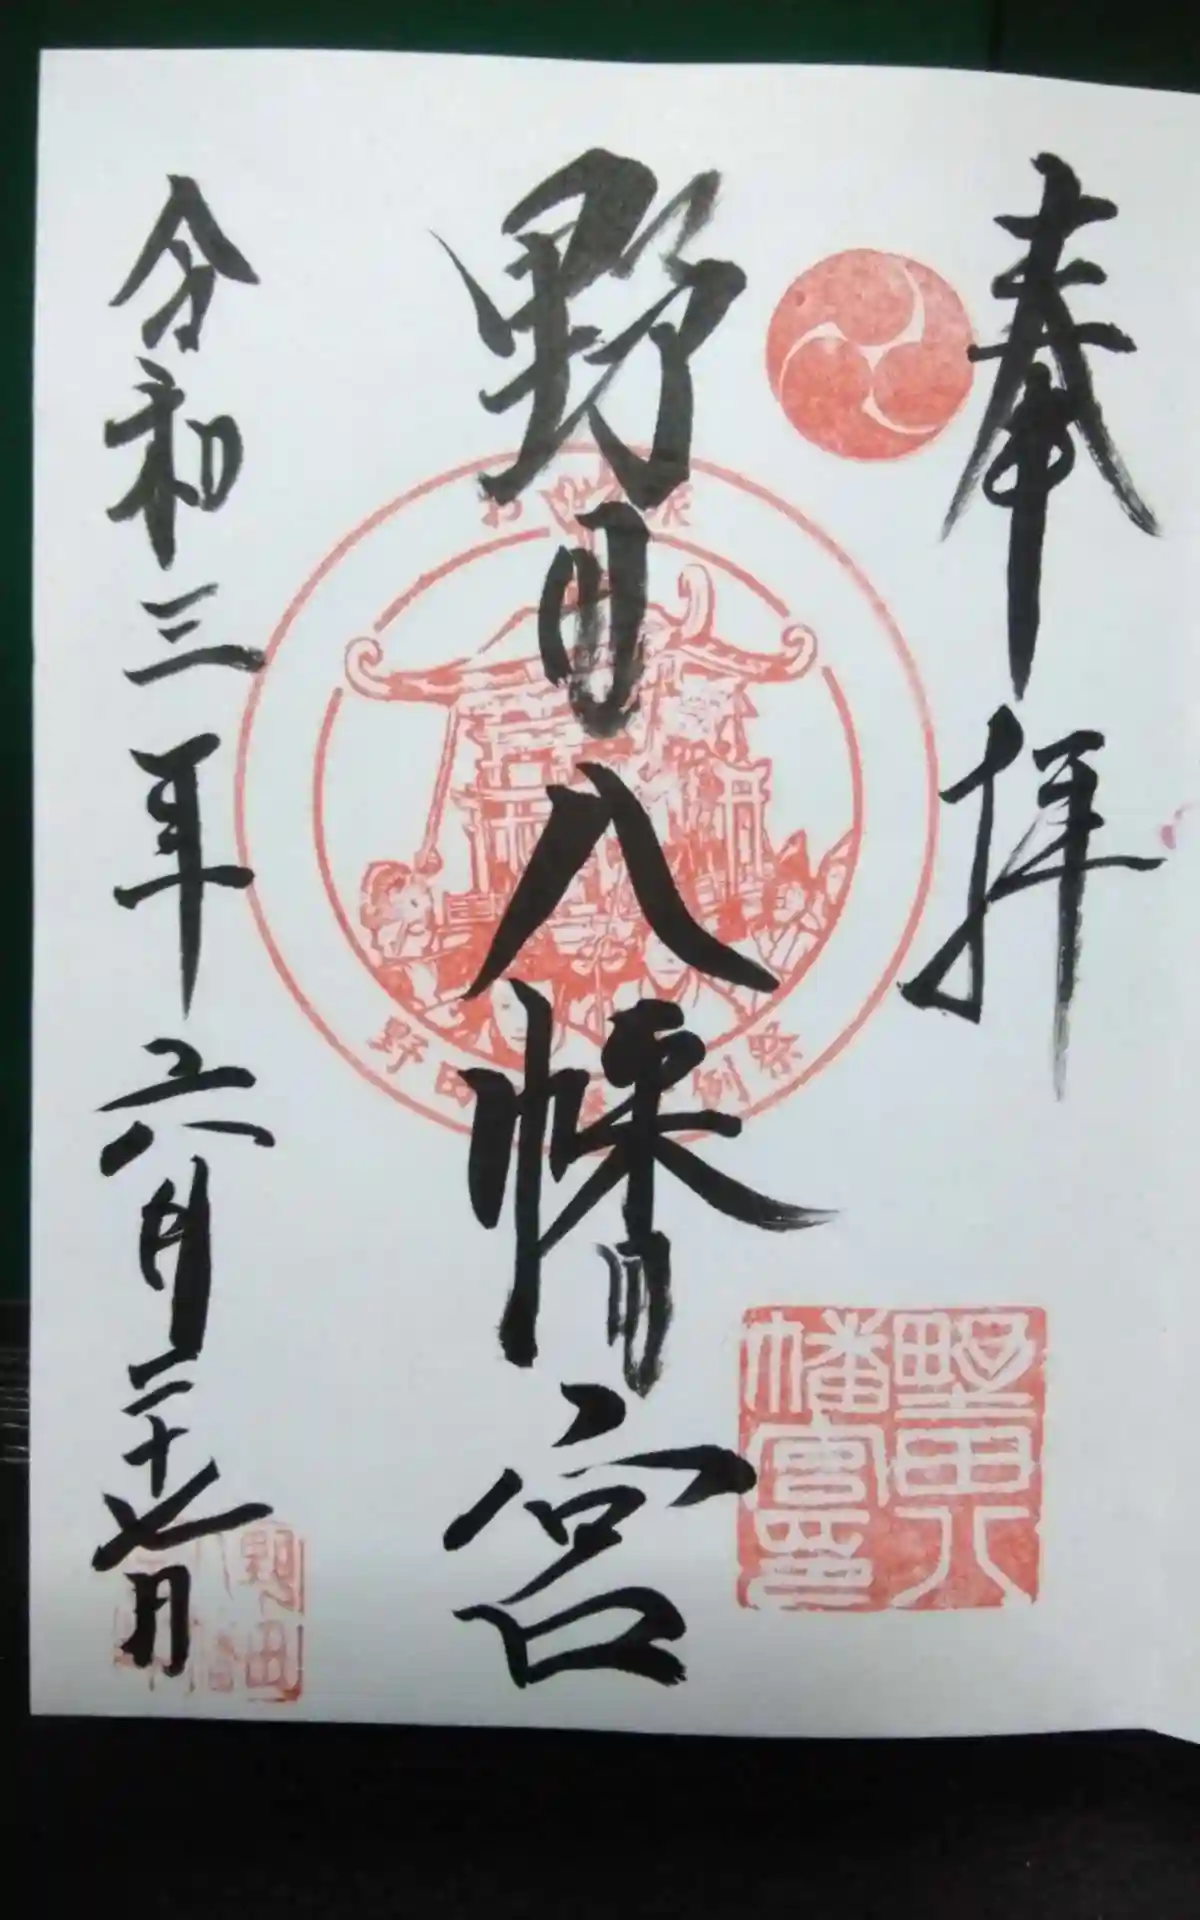 奉拝
野田八幡宮
令和三年六月二十七日
野田八
幡宮印
野田
例祭